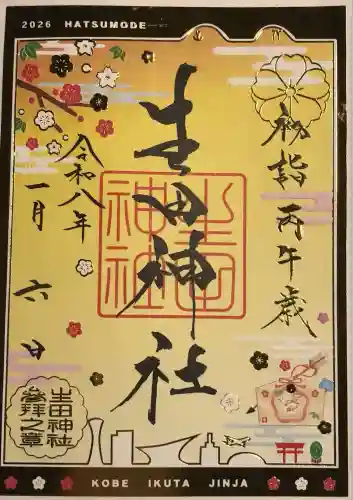 2026 HATSUMODE
令和八年
初詣 丙午歳
生田神社
生田神社
令和八年
一月六日
生田神社
参拝之章
KOBE IKUTA JINJA